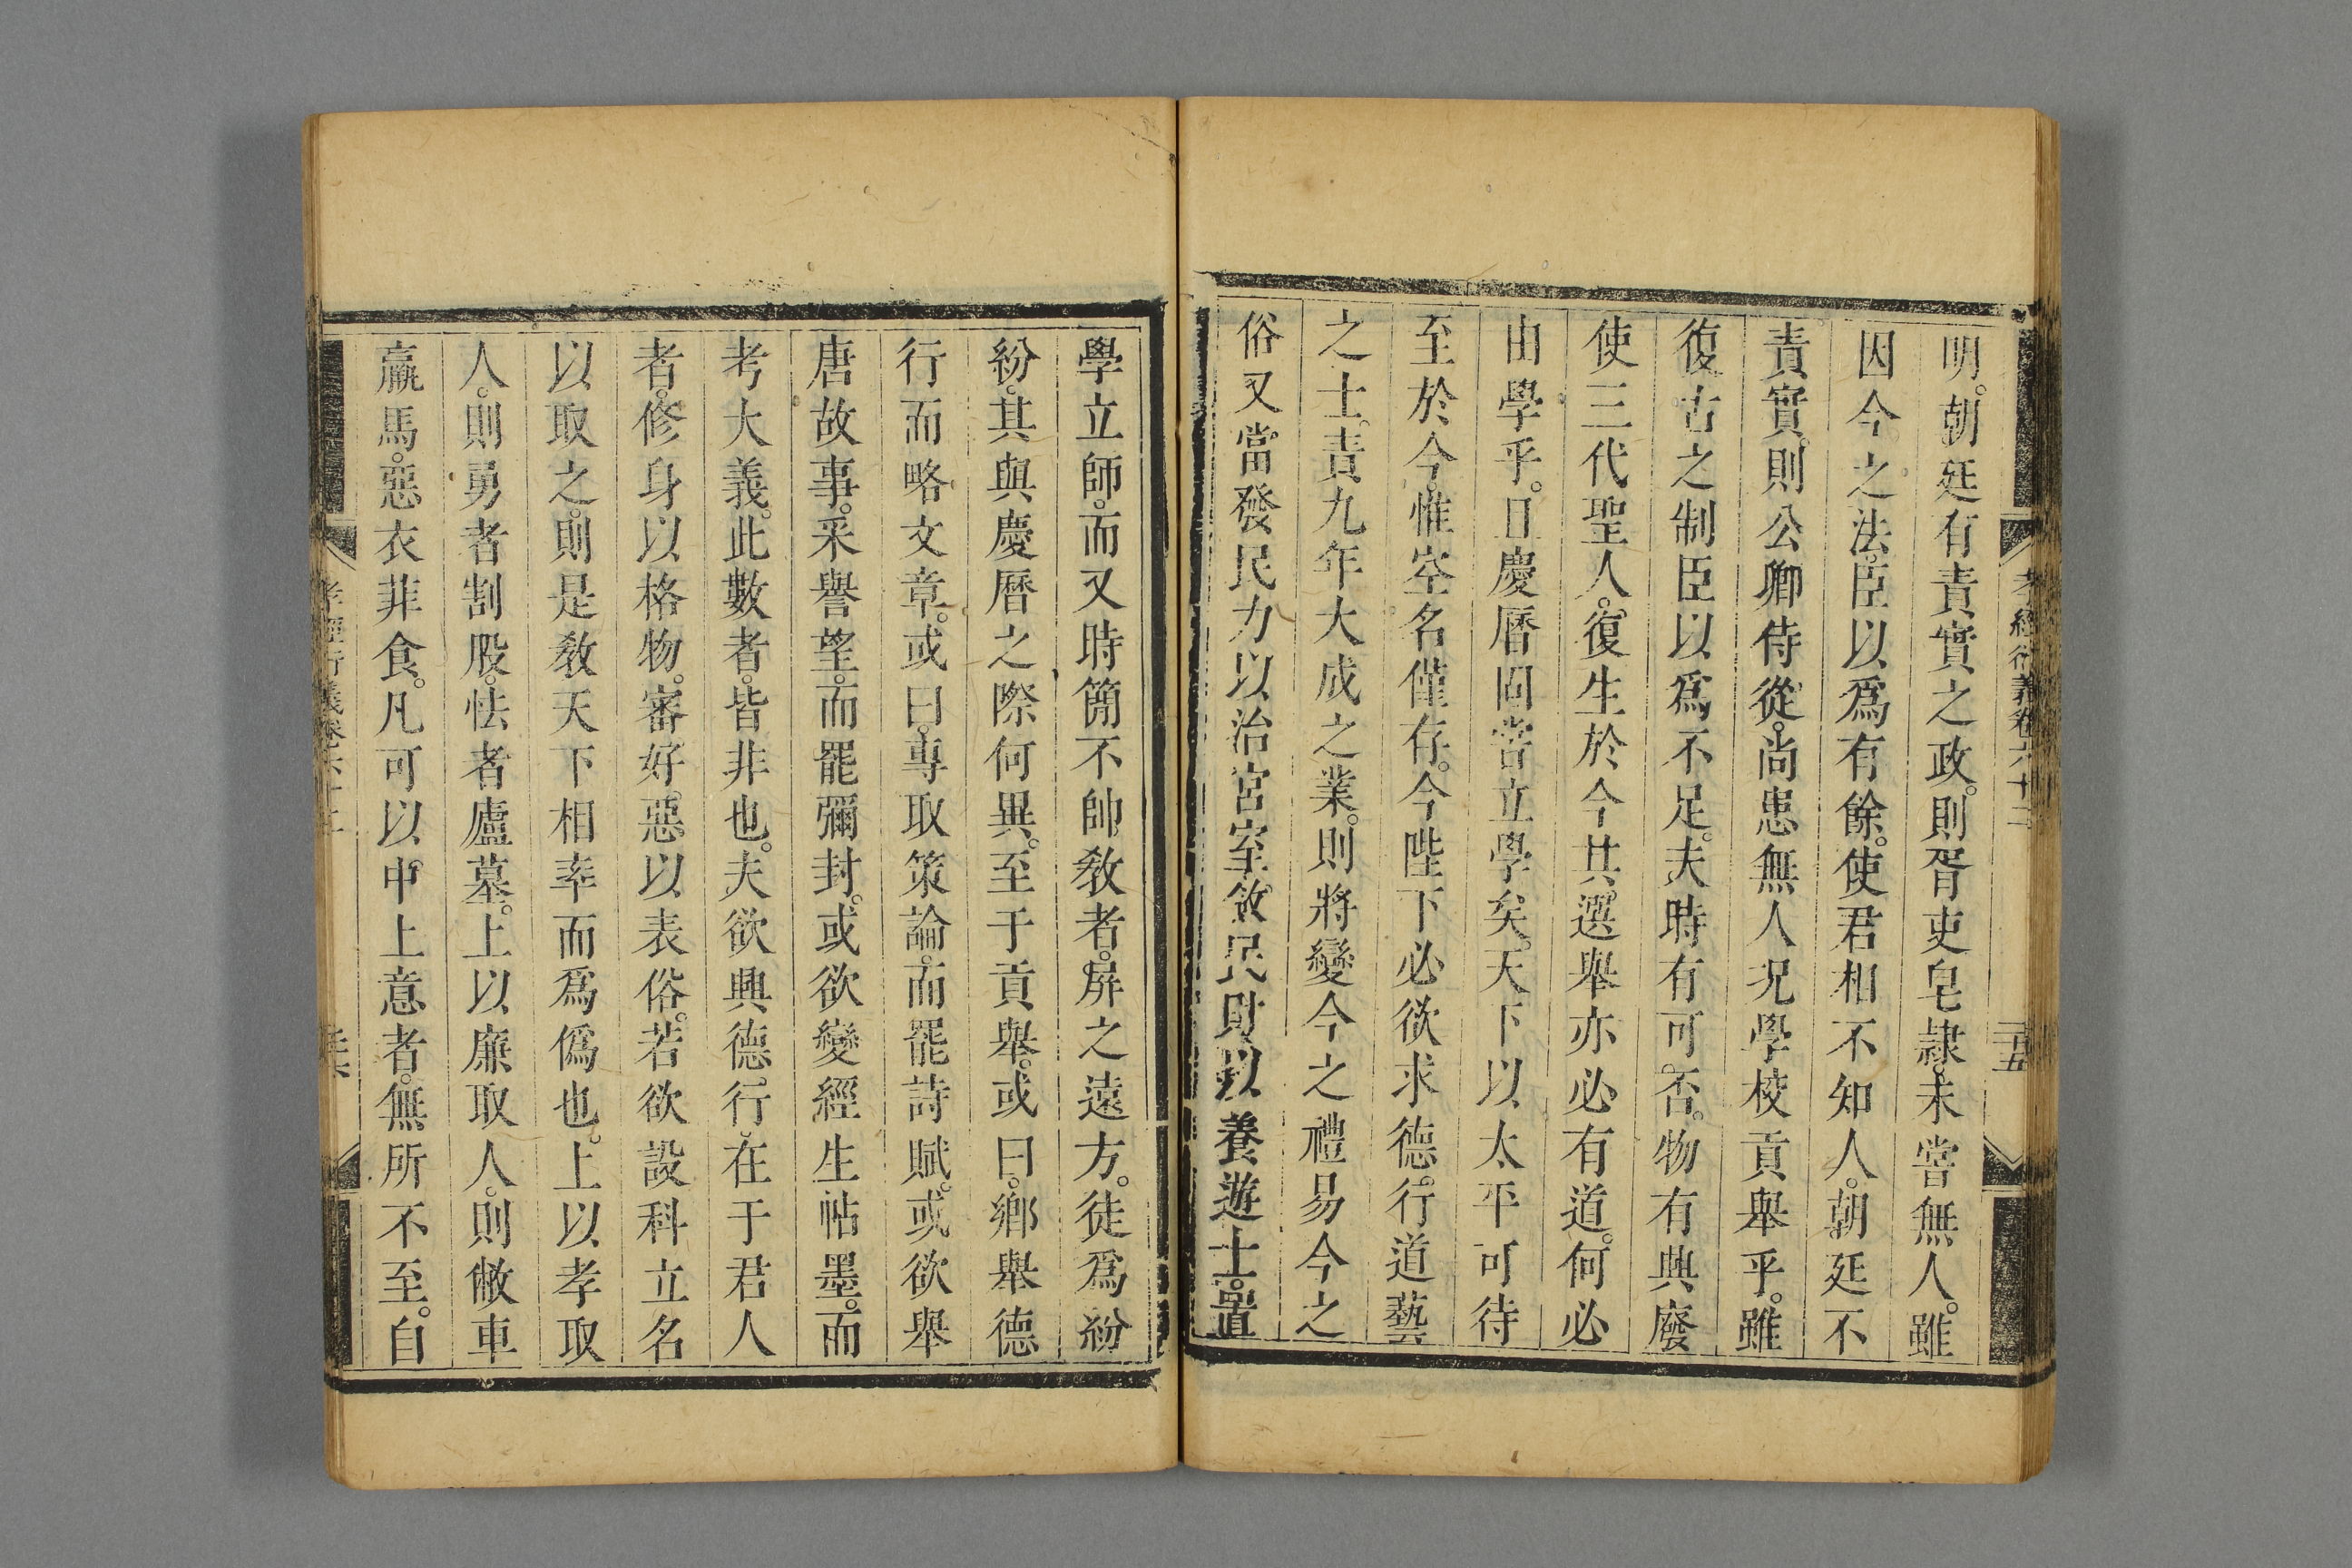 孝經衍義卷六十二
二十五
明。朝廷有責實之政。則胥吏皂隸。未嘗無人。雖
因今之法。臣以爲有餘。使君相不知人。朝廷不
責實。則公卿侍從。尚患無人。况學校貢舉乎。雖
復古之制。臣以爲不足。夫時有可否。物有興廢
使三代聖人。復生於今。其選舉亦必有道。何必
由學乎。且慶曆固嘗立學矣。天下以太平可待
至於今。惟空名僅存。今陛下必欲求德行道藝
之士。責九年大成之業。則將變今之禮。易今之
俗。又當發民力以治宮室。斂民財以養遊士。置
學立師。而又時簡不帥教者。屏之遠方。徒爲紛
紛。其與慶曆之際何異。至于貢舉。或曰。鄉舉德
行而略文章。或曰。專取策論。而罷詩賦。或欲舉
唐故事。采譽望。而罷彌封。或欲變經生帖墨。而
考大義。此數者。皆非也。夫欲興德行。在于君人
者。修身以格物。審好惡以表俗。若欲設科立名
以取之。則是教天下相率而爲僞也。上以孝取
人。則勇者割股。怯者廬墓。上以廉取人。則敝車
羸馬。惡衣菲食。凡可以中上意者。無所不至。自
孝經衍義卷六十二